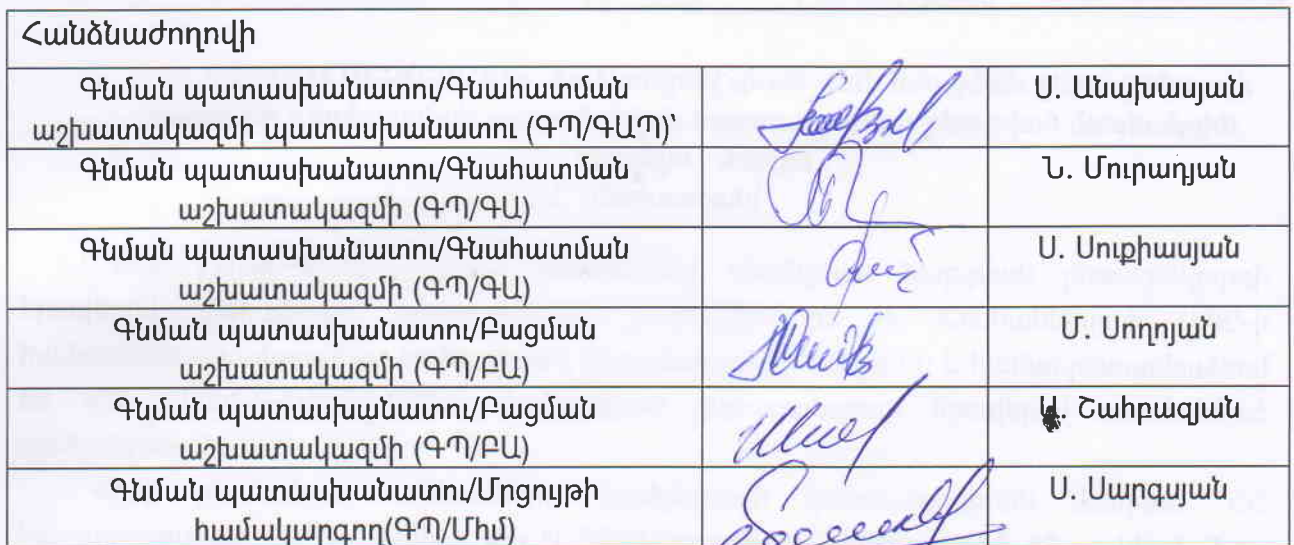 Հանձնաժողովի
Գնման պատասխանատու/Գնահատման
աշխատակազմի պատասխանատու (ԳՊ/ԳԱՊ)՝
Ս. Անախասյան
Գնման պատասխանատու/Գնահատման
աշխատակազմի (ԳՊ/ԳԱ)
Ն. Մուրադյան
Գնման պատասխանատու/Գնահատման
աշխատակազմի (ԳՊ/ԳԱ)
Ս. Սուքիասյան
Գնման պատասխանատու/Բացման
աշխատակազմի (ԳՊ/ԲԱ)
Մ. Սողոյան
Գնման պատասխանատու/Բացման
աշխատակազմի (ԳՊ/ԲԱ)
Շահբազյան
Գնման պատասխանատու/Մրցույթի
համակարգող(ԳՊ/Մհմ)
Ս. Սարգսյան